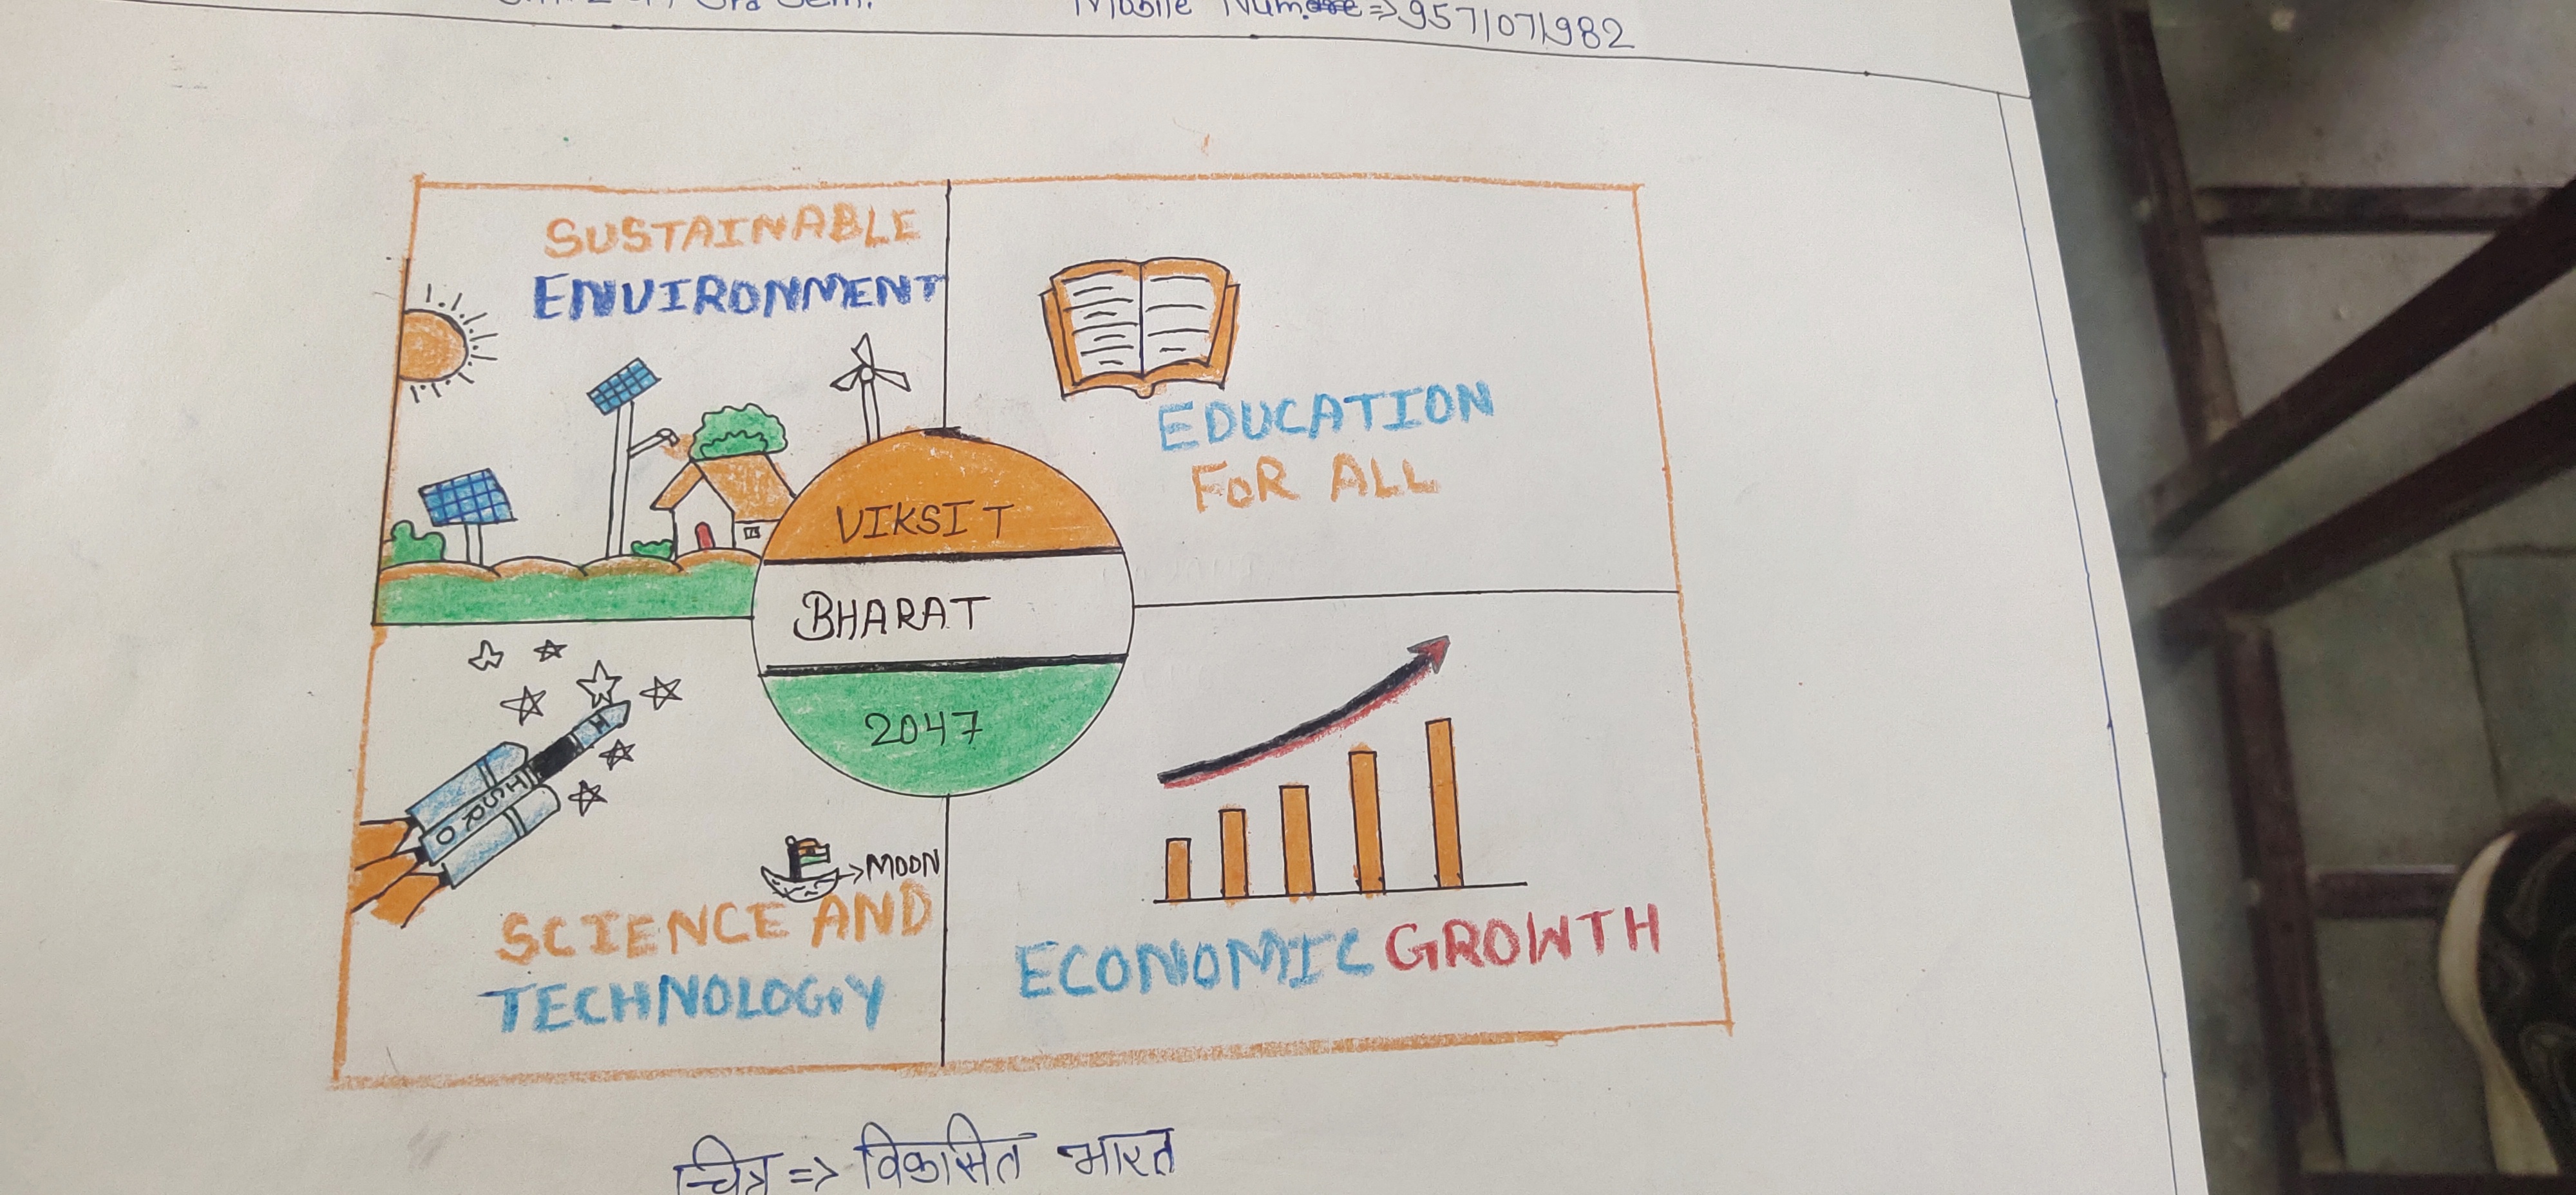 3rd Sem.
Mobile Num. => 9571071982
SUSTAINABLE
ENVIRONMENT
EDUCATION
FOR ALL
VIKSIT
BHARAT
2047
ISRO
MOON
SCIENCE AND
TECHNOLOGY
ECONOMIC GROWTH
चित्र => विकासित भारत